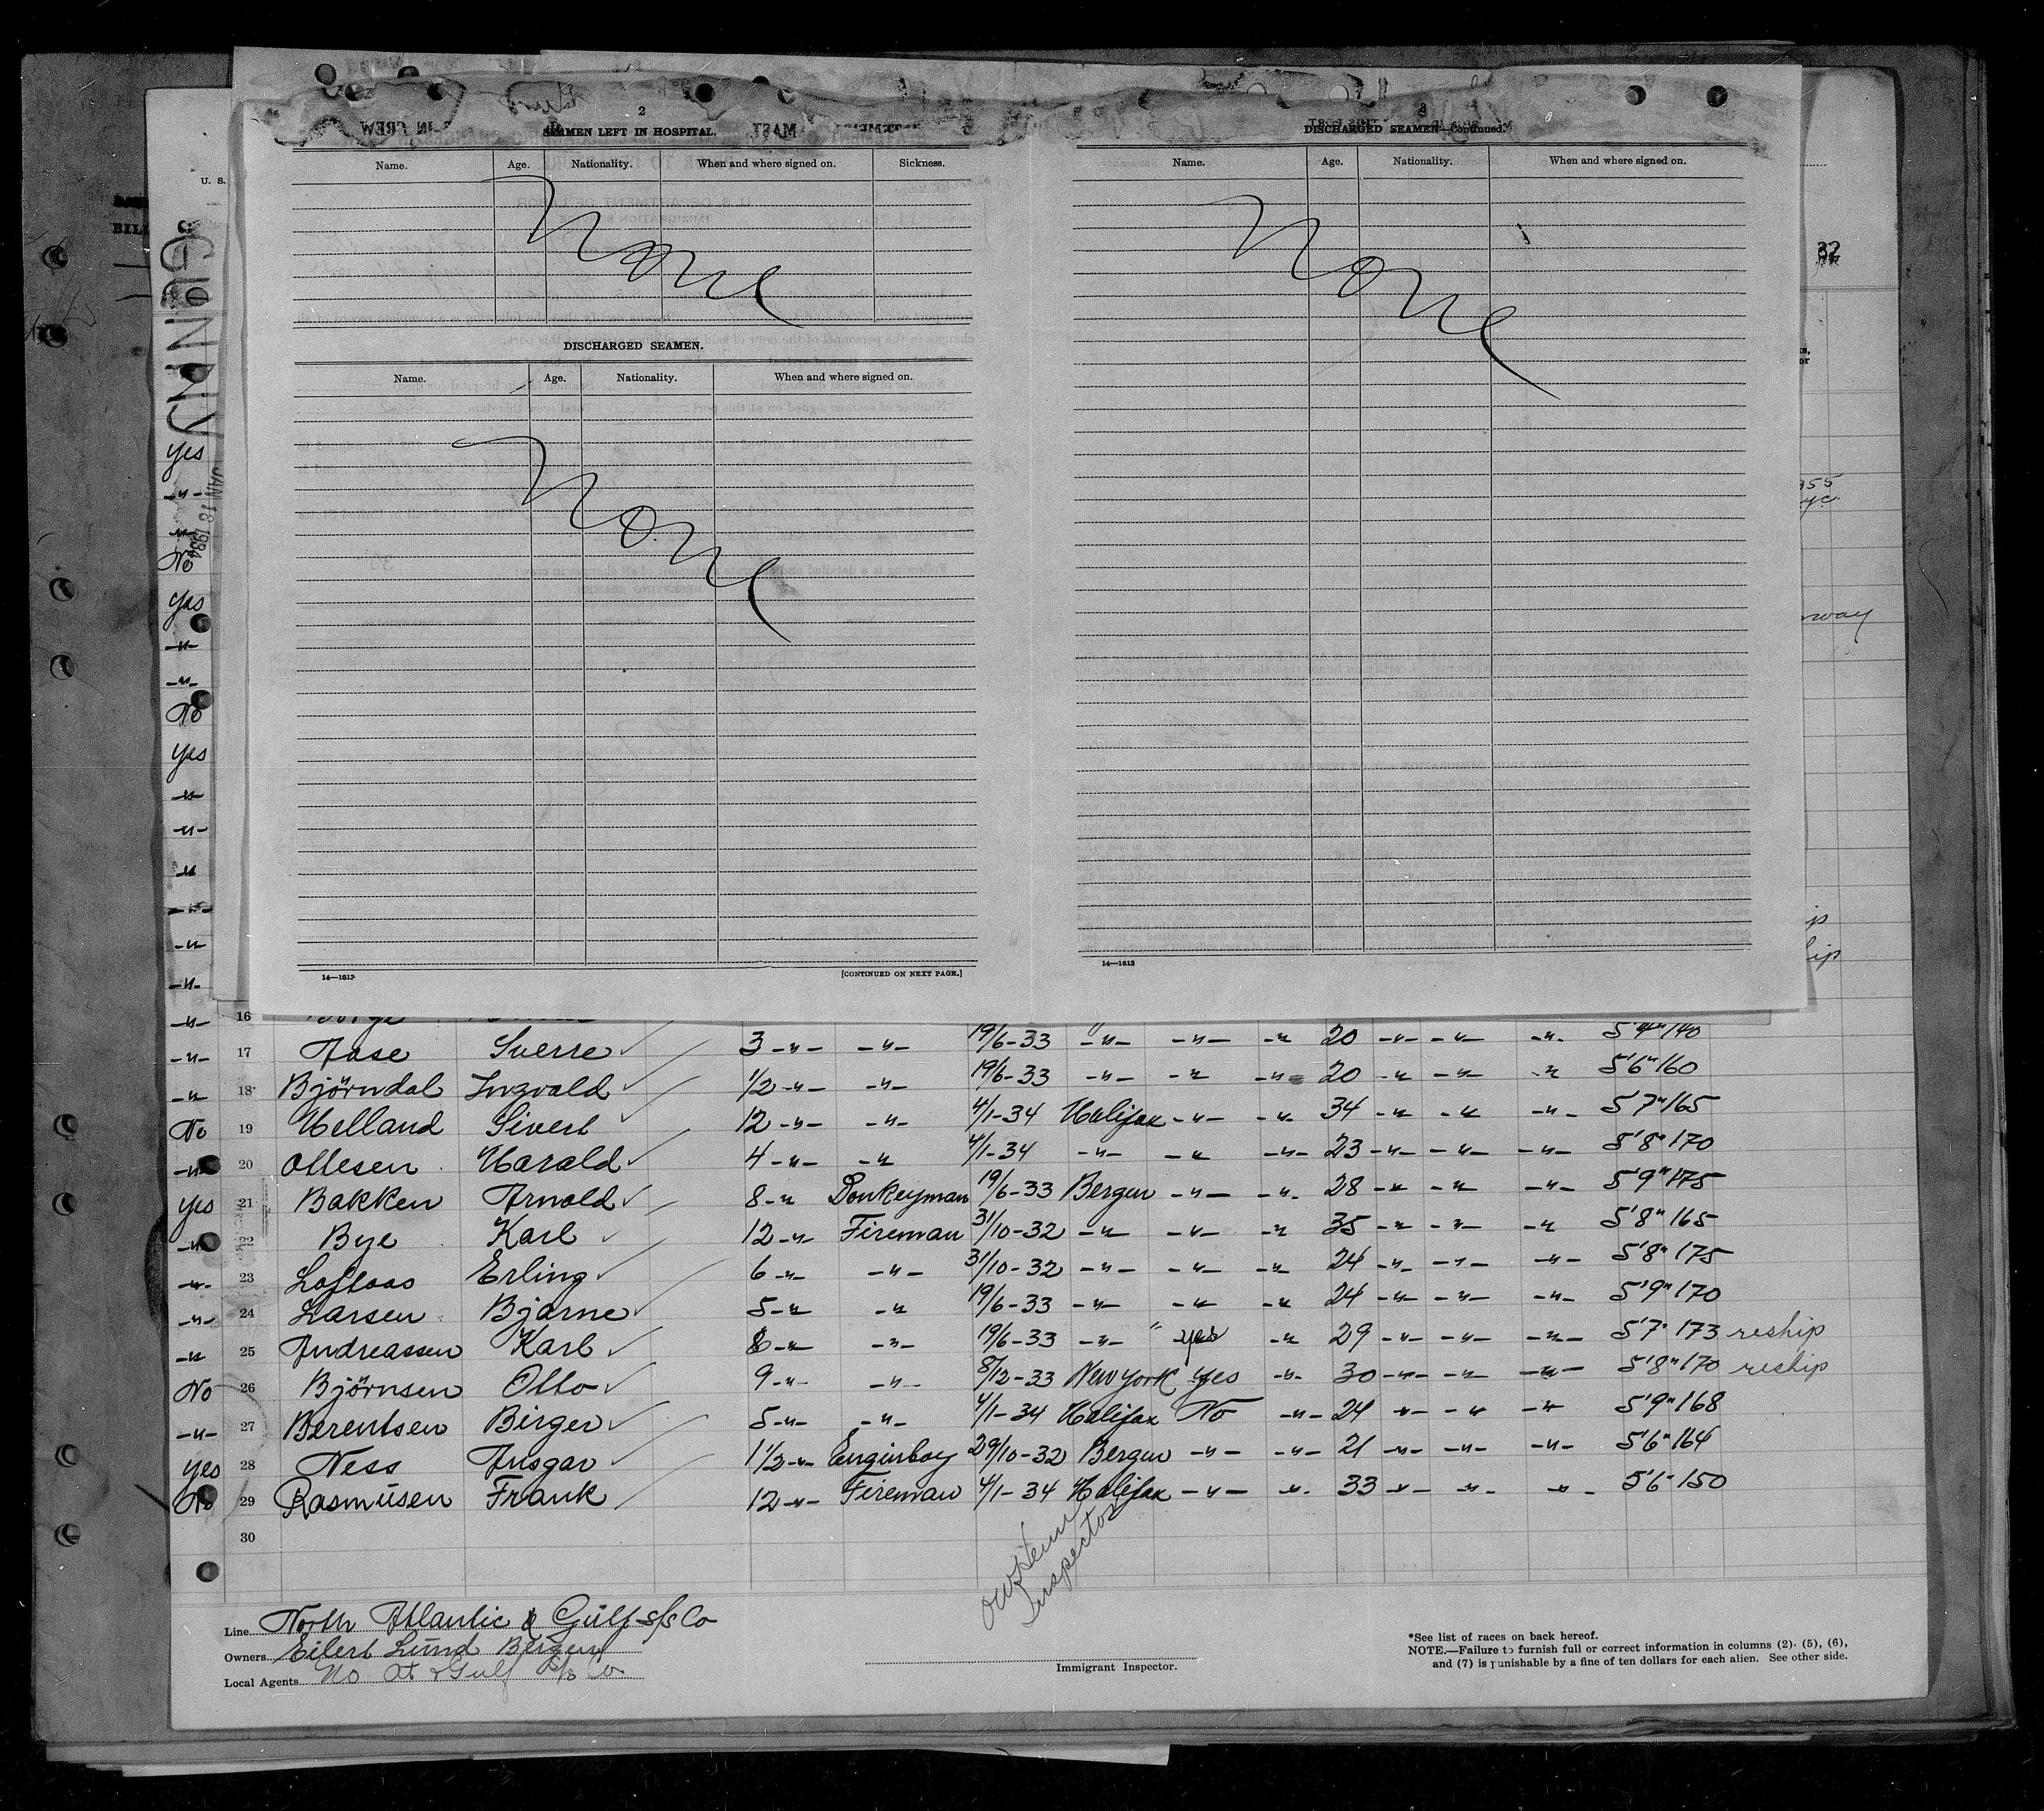 2
SEAMEN LEFT IN HOSPITAL.
Name. Age. Nationality. When and where signed on. Sickness.
None
DISCHARGED SEAMEN.
Name. Age. Nationality. When and where signed on.
None
14—1613 [CONTINUED ON NEXT PAGE.]
3
DISCHARGED SEAMEN—Continued.
Name. Age. Nationality. When and where signed on.
None
14—1613
U. S.
JAN 18 1934
32
yes
-"-
-"-
No
yes
-"-
-"-
No
yes
-"-
-"-
-"-
-"-
-"-
-"-
-"- 16
-"- 17 Aase Sverre 3 -"- -"- 19/6-33 -"- -"- -"- 20 -"- -"- -"- 5'4" 140
-"- 18 Björndal Ingvald 1/2 -"- -"- 19/6-33 -"- -"- -"- 20 -"- -"- -"- 5'6" 160
No 19 Helland Sivert 12 -"- -"- 4/1-34 Halifax -"- -"- 34 -"- -"- -"- 5'7" 165
-"- 20 Ollesen Harald 4 -"- -"- 4/1-34 -"- -"- -"- 23 -"- -"- -"- 5'8" 170
yes 21 Bakken Arnold 8 -"- Donkeyman 19/6-33 Bergen -"- -"- 28 -"- -"- -"- 5'9" 175
-"- 22 Bye Karl 12 -"- Fireman 31/10-32 -"- -"- -"- 35 -"- -"- -"- 5'8" 165
-"- 23 Loftaas Erling 6 -"- -"- 31/10-32 -"- -"- -"- 24 -"- -"- -"- 5'8" 175
-"- 24 Larsen Bjarne 5 -"- -"- 19/6-33 -"- -"- -"- 24 -"- -"- -"- 5'9" 170
-"- 25 Andreassen Karl 8 -"- -"- 19/6-33 -"- " yes -"- 29 -"- -"- -"- 5'7" 173 reship
No 26 Björnsen Otto 9 -"- -"- 8/12-33 New York yes -"- 30 -"- -"- -"- 5'8" 170 reship
-"- 27 Berentsen Birger 5 -"- -"- 4/1-34 Halifax No -"- 24 -"- -"- -"- 5'9" 168
yes 28 Ness Ansgar 1 1/2 -"- Enginboy 29/10-32 Bergen -"- -"- 21 -"- -"- -"- 5'6" 164
No 29 Rasmüsen Frank 12 -"- Fireman 4/1-34 Halifax -"- -"- 33 -"- -"- -"- 5'6" 150
30
Inspector
Line North Atlantic & Gülf s/s Co
Owners Eilert Lünd Bergen
Local Agents No At & Gulf S/S Co
Immigrant Inspector.
*See list of races on back hereof.
NOTE.—Failure to furnish full or correct information in columns (2), (5), (6),
and (7) is punishable by a fine of ten dollars for each alien. See other side.